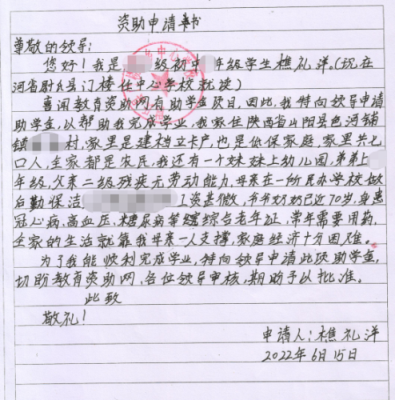 资助申请书
尊敬的领导:
您好!我是 级初中 年级学生樵礼洋,(现在
河省尉氏县门楼任中心学校就读)
喜闻教育资助网有助学金项目,因此,我特向领导申请
助学金,以帮助我完成学业,我家住陕西省山阳县色河铺
镇 村,家里是建档立卡户,也是低保家庭,家里共七
口人,全家都是农民,我还有一个妹妹上幼儿园,弟弟上
年级,父亲二级残疾无劳动能力,母亲在一所民办学校做
后勤保洁 工资甚微,爷爷奶奶已近70岁,身患
冠心病、高血压、糖尿病等综合老年证,常年需要用药,
全家的生活就靠我母亲一人支撑,家庭经济十分困难。
为了我能顺利完成学业,特向领导申请此项助学金,
切盼教育资助网、各位领导审核,期盼予以批准。
此致
敬礼!
申请人:樵礼洋
2022年6月15日